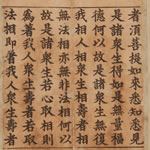 者須菩提如來悉知悉見
是諸衆生得如是無量福
德何以故是諸衆生無復
我相人相衆生相壽者相
無法相亦無非法相何以
故是諸衆生若心取相則
為著我人衆生壽者若取
法相即著我人衆生壽者